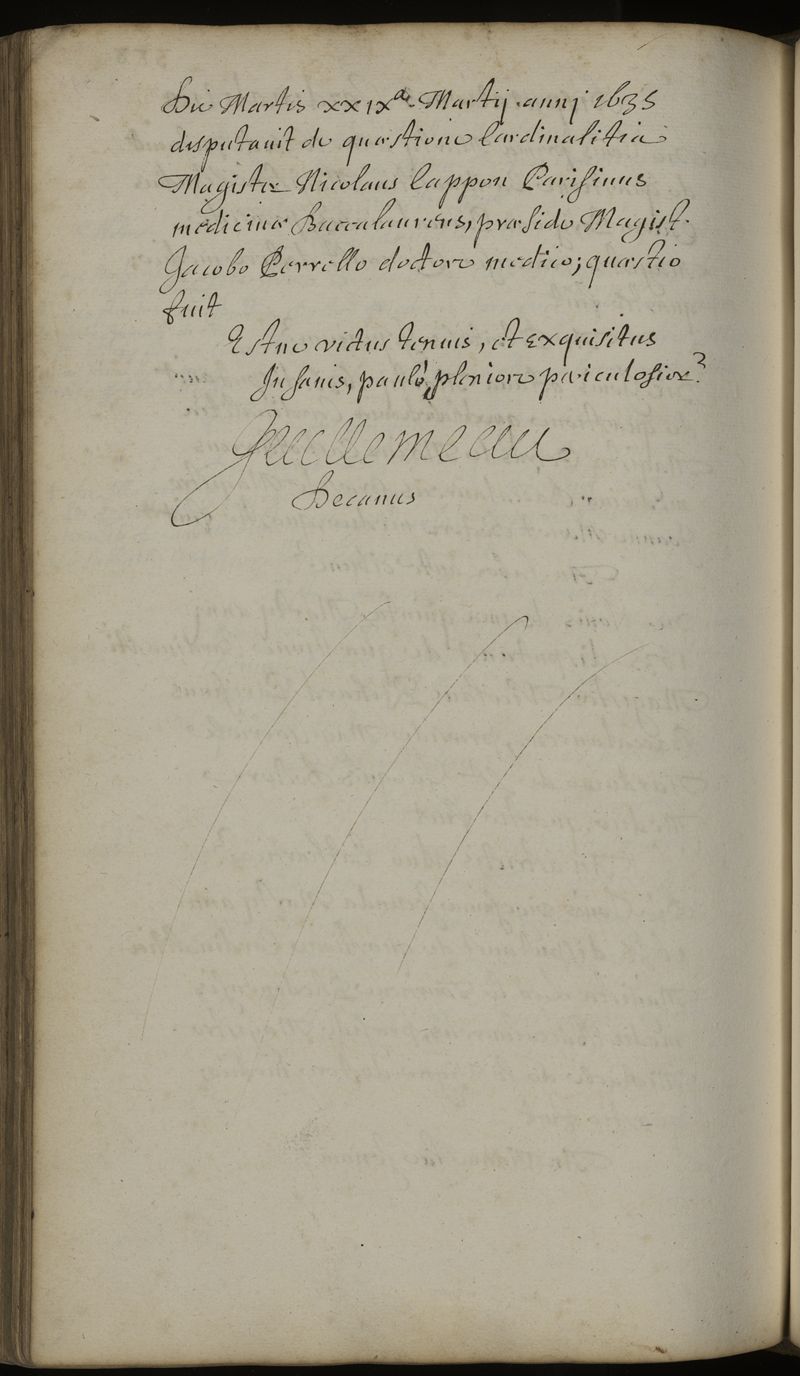 Die Martis XXIXa Martij annj 1635
disputauit de quæstione Cardinalitia
Magister Nicolaus Cappon Parisinus
medicinæ Baccalaureus, præside Magist.
Jacobo Perrello doctore medico; quæstio
fuit
Estne victus tenuis, et exquisitus
Jn sanis, paulò pleniore periculosior?
Guillemeau
Decanus